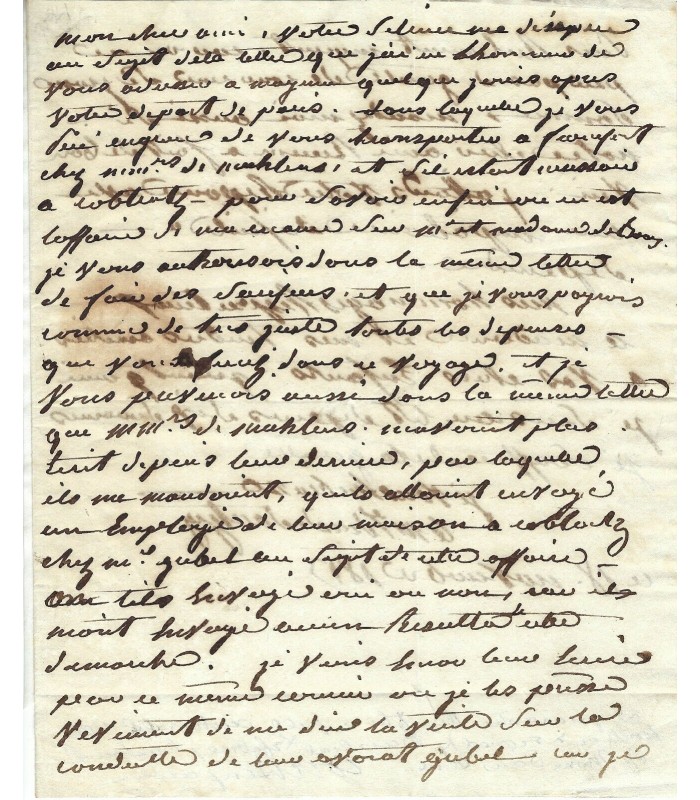 mon cher ami, votre silence me désespere
au sujet de la lettre que jai eu Lhonneur de
vous adresser a mayence quelque jours apres
votre depart de paris. dans laquelle je vous
de vous transporter a francfort
chez mm.rs de et sil estoit necessaire
a coblentz pour savoir enfin ou en est
laffaire de ma creance sur mr et madame de
je vous authorisois dans la même lettre
de faire des et que je vous payerois
comme de tres juste toutes les depenses
que vous feriez dans ce voyage. et je
vous prevenois aussi dans la même lettre
que mm.rs de mavoient plus
ecrit depuis leur derniere, par laquelle
ils me mandoient, quils alloient envoyé
un Employé de leur maison a coblentz
chez mr. gubel au sujet de cette affaire
ont ils Envoyé oui ou non, car ils
mont Envoyé aucun Resultat de cette
demarche. je viens Encor leur Ecrire
par ce même courier ou je les presse
vivement de me dire la verité sur la
conduitte de leur avocat gubel car je